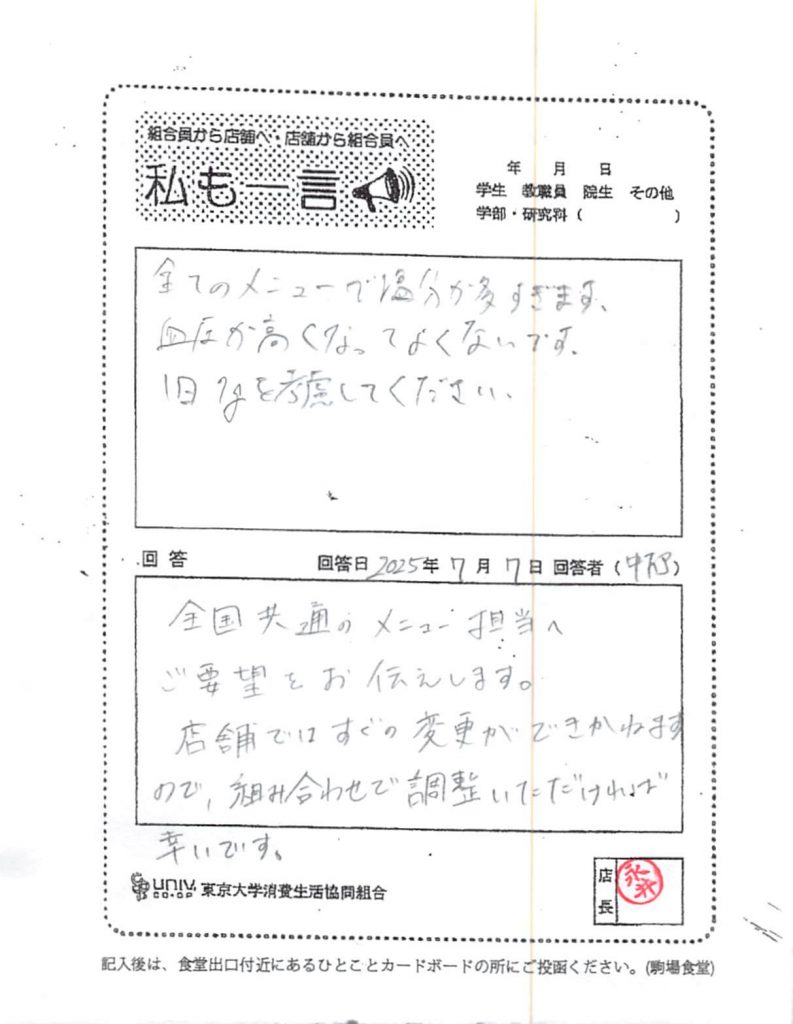 組合員から店舗へ・店舗から組合員へ
私も一言
年 月 日
学生 教職員 院生 その他
学部・研究科 ( )
全てのメニューで塩分が多すぎます、
血圧が高くなってよくないです、
1日7gを考慮してください、
回答 回答日 2025年 7月 7日 回答者 ( )
全国共通のメニュー担当へ
ご要望をお伝えします。
店舗ではすぐの変更ができかねます
ので、組み合わせで調整いただければ
幸いです。
UNIV. CO-OP 東京大学消費生活協同組合
店長
記入後は、食堂出口付近にあるひとことカードボードの所にご投函ください。(駒場食堂)